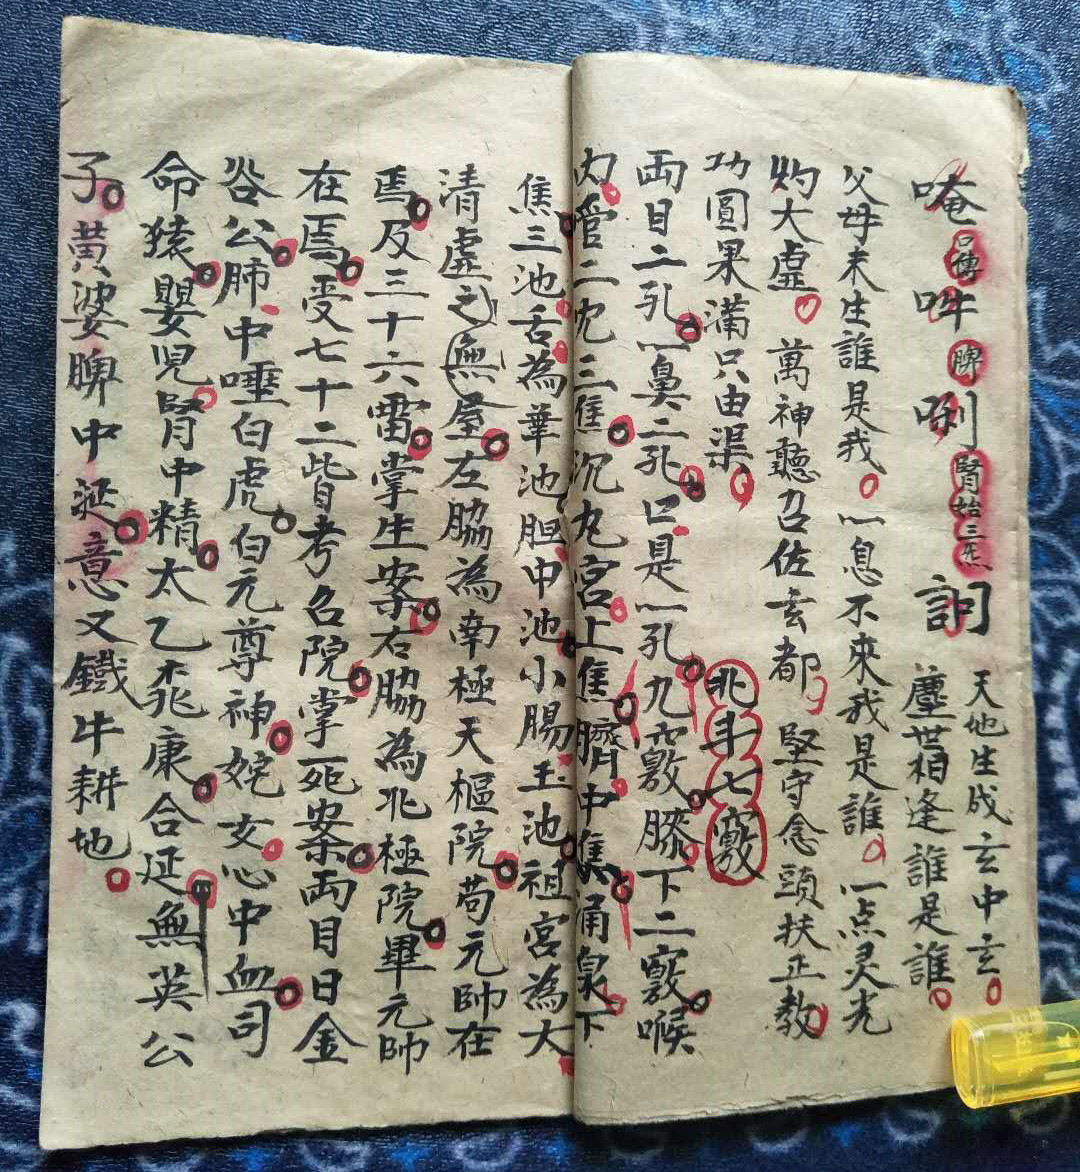 唵呂傳吽脾唎腎始三炁
訶天地生成玄中玄
塵世相逢誰是誰
父母未生誰是我一息不來我是誰一点灵光
灼大虛萬神聽召佐玄都堅守念頭扶正教
功圓果滿只由渠 北斗七竅
兩目二孔一鼻二孔口是一孔九竅膝下二竅喉
内管二沉三焦沉丸宮上焦臍中焦涌泉下
焦三池舌為華池胆中池小腸玉池祖宮為大
清虛之無屋左脇為南極天樞院苟元帥在
焉及三十六雷掌生案右脇為北極院畢元帥
在焉受七十二皆考召院掌死案兩目日金
公肺中唾白虎白元尊神姹女心中血司
命猿嬰兒腎中精太乙桃康合延無英公
子黄婆脾中涎意又鐵牛耕地